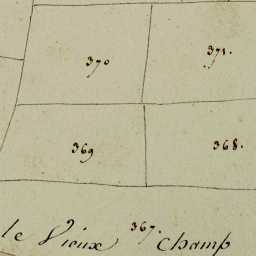 370 371.
369 368.
367.
le Vieux Champ